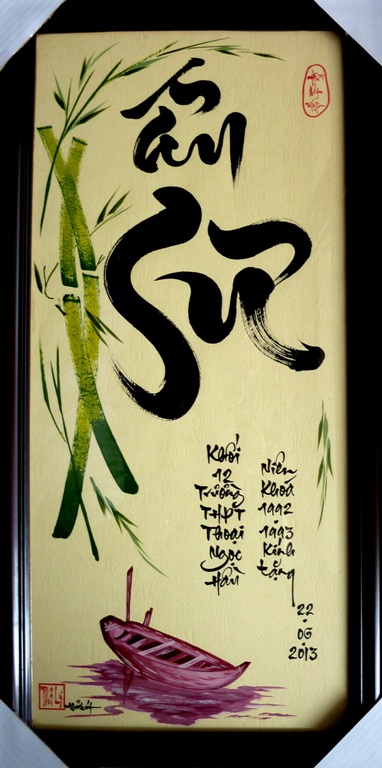 Ân
Sư
Khối
12
Trường
THPT
Thoại
Ngọc
Hầu
Niên
Khoá
1992
-
1993
Kính
tặng
22
.
06
.
2013